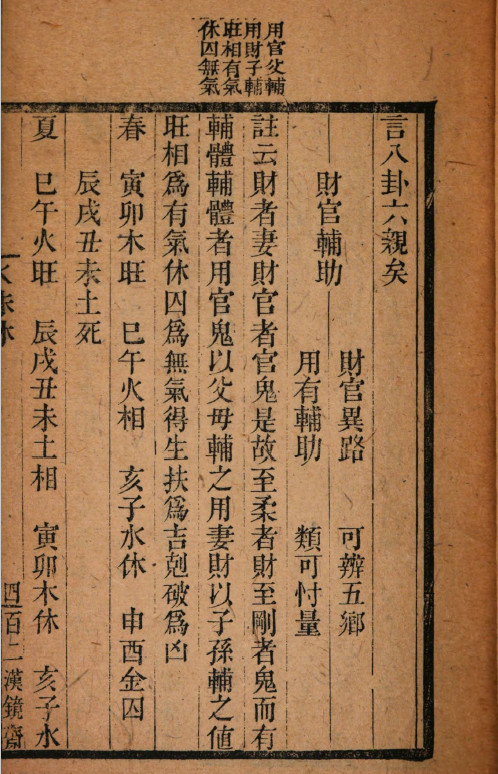 用官父輔
用財子輔
旺相有氣
休囚無氣
言八卦六親矣
財官輔助
財官異路 可辨五鄉
用有輔助 類可忖量
註云財者妻財官者官鬼是故至柔者財至剛者鬼而有
輔體輔體者用官鬼以父母輔之用妻財以子孫輔之値
旺相爲有氣休囚爲無氣得生扶爲吉剋破爲凶
春 寅卯木旺 巳午火相 亥子水休 申酉金囚
辰戌丑未土死
夏 巳午火旺 辰戌丑未土相 寅卯木休 亥子水
四百二 漢鏡齋